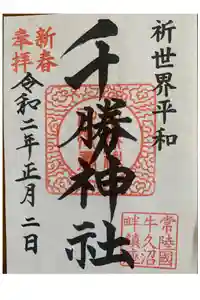 祈世界平和
千勝神社
新春
奉拝
令和二年正月二日
常陸國
牛久沼
畔鎮座